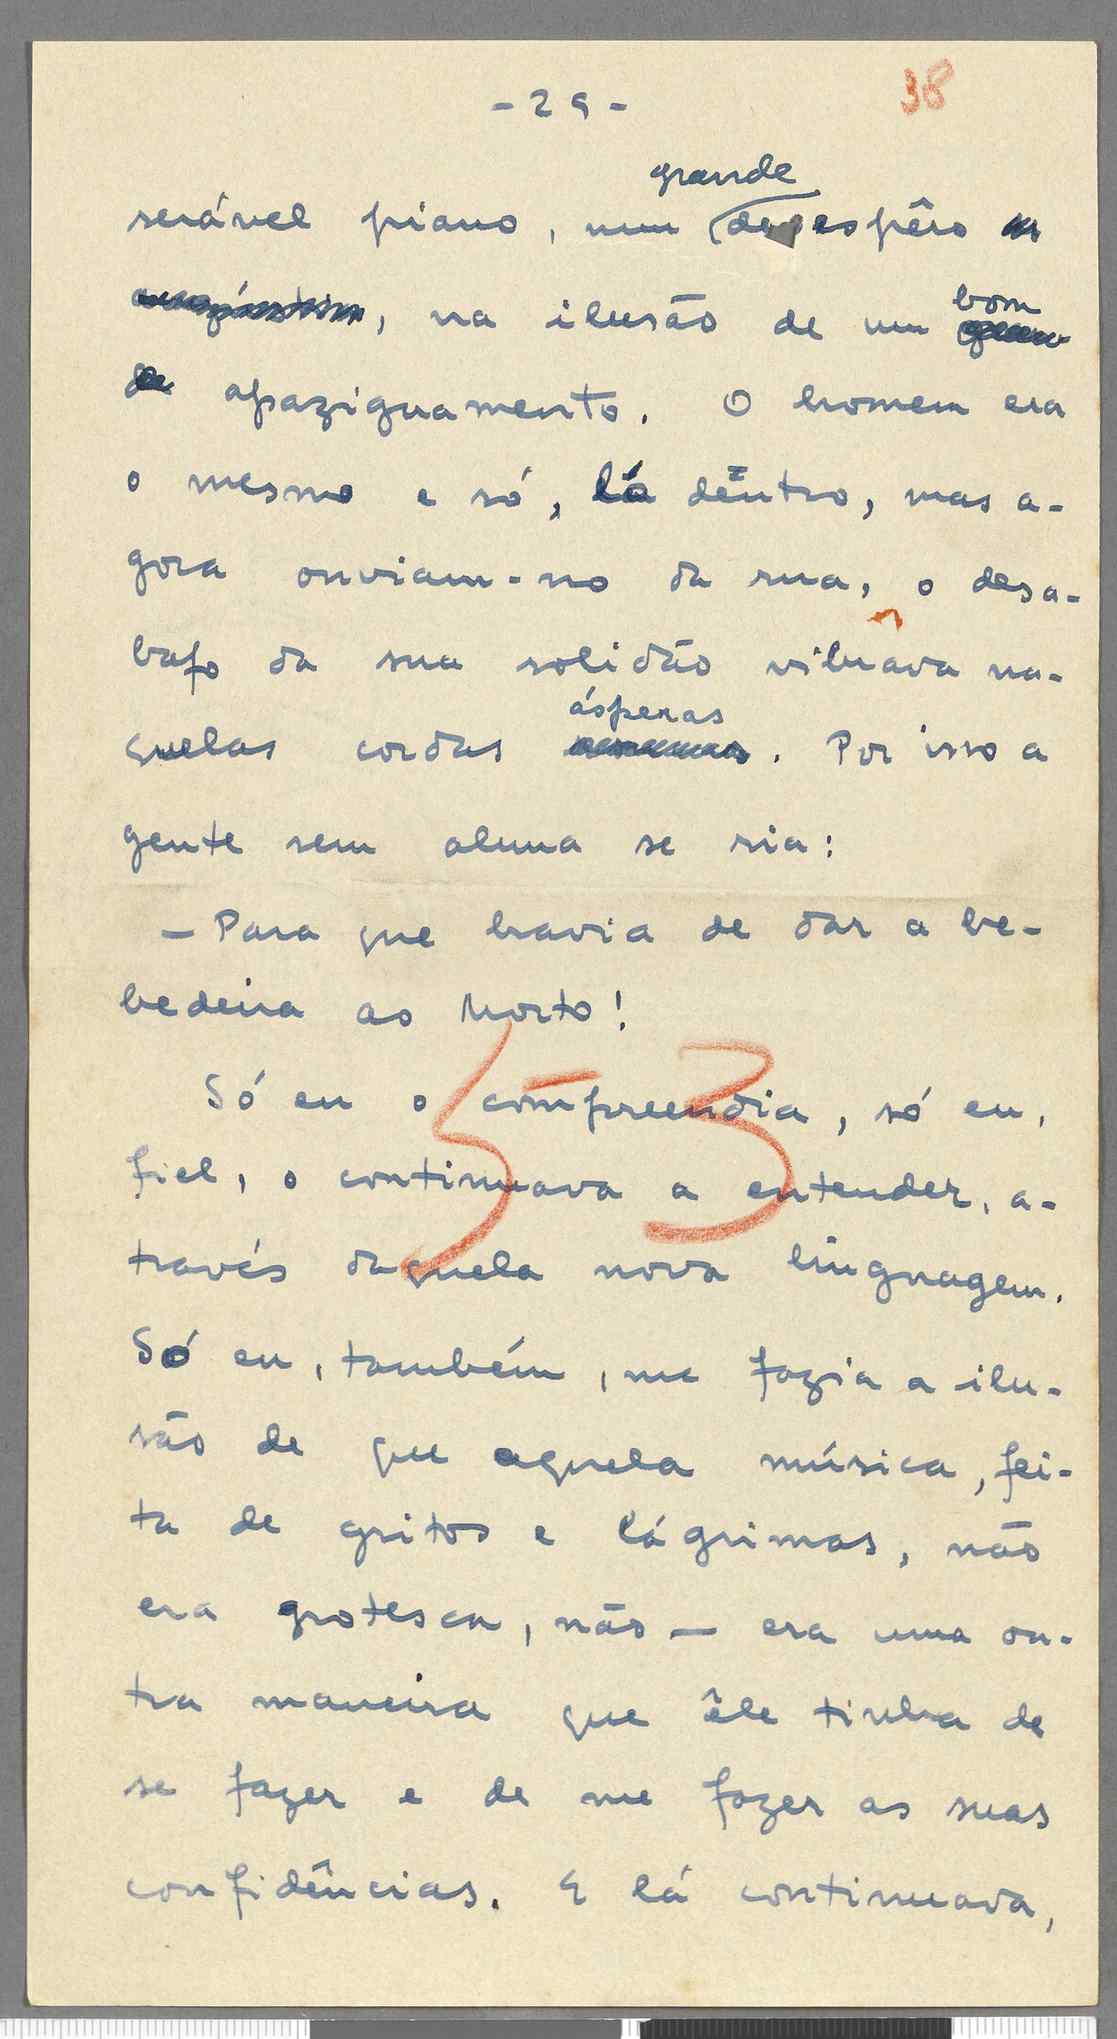 - 29 -
38
grande
serável piano, num desespêro
bom
, na ilusão de um gran-
de apaziguamento. O homem era
o mesmo e só, lá dêntro, mas a-
gora ouviam-no da rua, o desa-
bafo da sua solidão vibrava na-
ásperas
quelas cordas . Por isso a
gente sem aluna se ria:
— Para que havia de dar a be-
bedeira ao Morto!
53
Só eu o compreendia, só eu,
fiel, o continuava a entender, a-
través daquela nova linguagem.
Só eu, também, me fazia a ilu-
são de que aquela música, fei-
ta de gritos e lágrimas, não
era grotesca, não — era uma ou-
tra maneira que êle tinha de
se fazer e de me fazer as suas
confidências. E lá continuava,